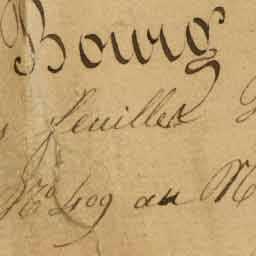 Bourg
feuillet
N° 409 au N